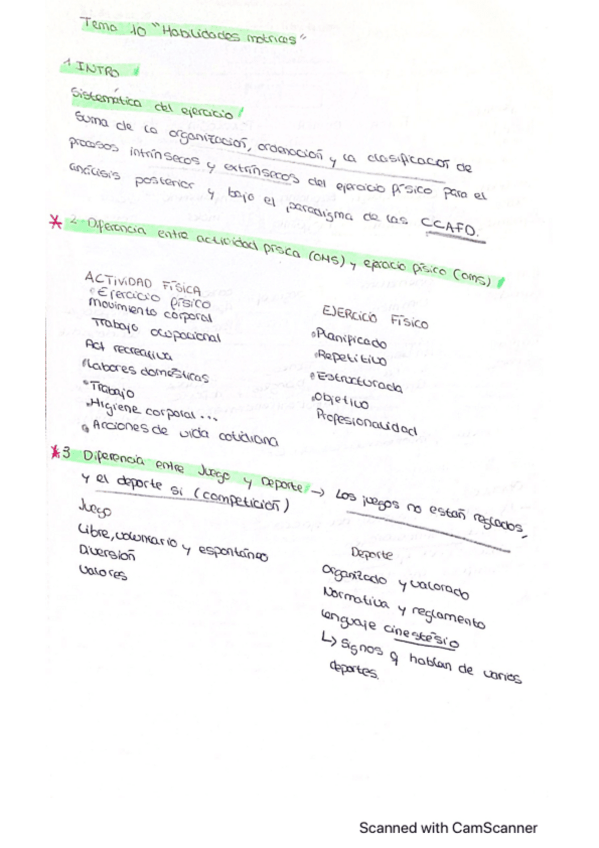 Tema 10 "Habilidades motrices"
1 INTRO
Sistemática del ejercicio
Suma de la organización, ordenación y la clasificación de
procesos intrínsecos y extrínsecos del ejercicio físico para el
análisis posterior y bajo el paradigma de las CCAFD.
* 2 Diferencia entre actividad física (OMS) y ejercicio físico (oms)
ACTIVIDAD FÍSICA
• Ejercicio físico
movimiento corporal
Trabajo ocupacional
Act recreativa
Labores domésticas
• Trabajo
• Higiene corporal ...
• Acciones de vida cotidiana
EJERCICIO FÍSICO
• Planificado
• Repetitivo
• Estructurada
• Objetivo
Profesionalidad
* 3 Diferencia entre Juego y Deporte → Los juegos no están reglados,
y el deporte si (competición)
Juego
Libre, voluntario y espontáneo
Diversión
Valores
Deporte
Organizado y valorado
Normativa y reglamento
Lenguaje cinestésio
↳ Signos q hablan de varios
deportes.
Scanned with CamScanner